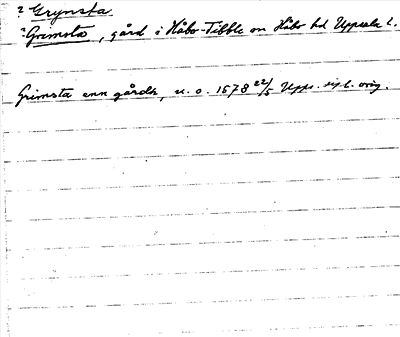 ? Grynsta
? Grimsta, gård i Håbo-Tibble sn Håbo hd Uppsala l.
Grimsta enn gårdh, u. o. 1578 22/5 Upps.
orig.